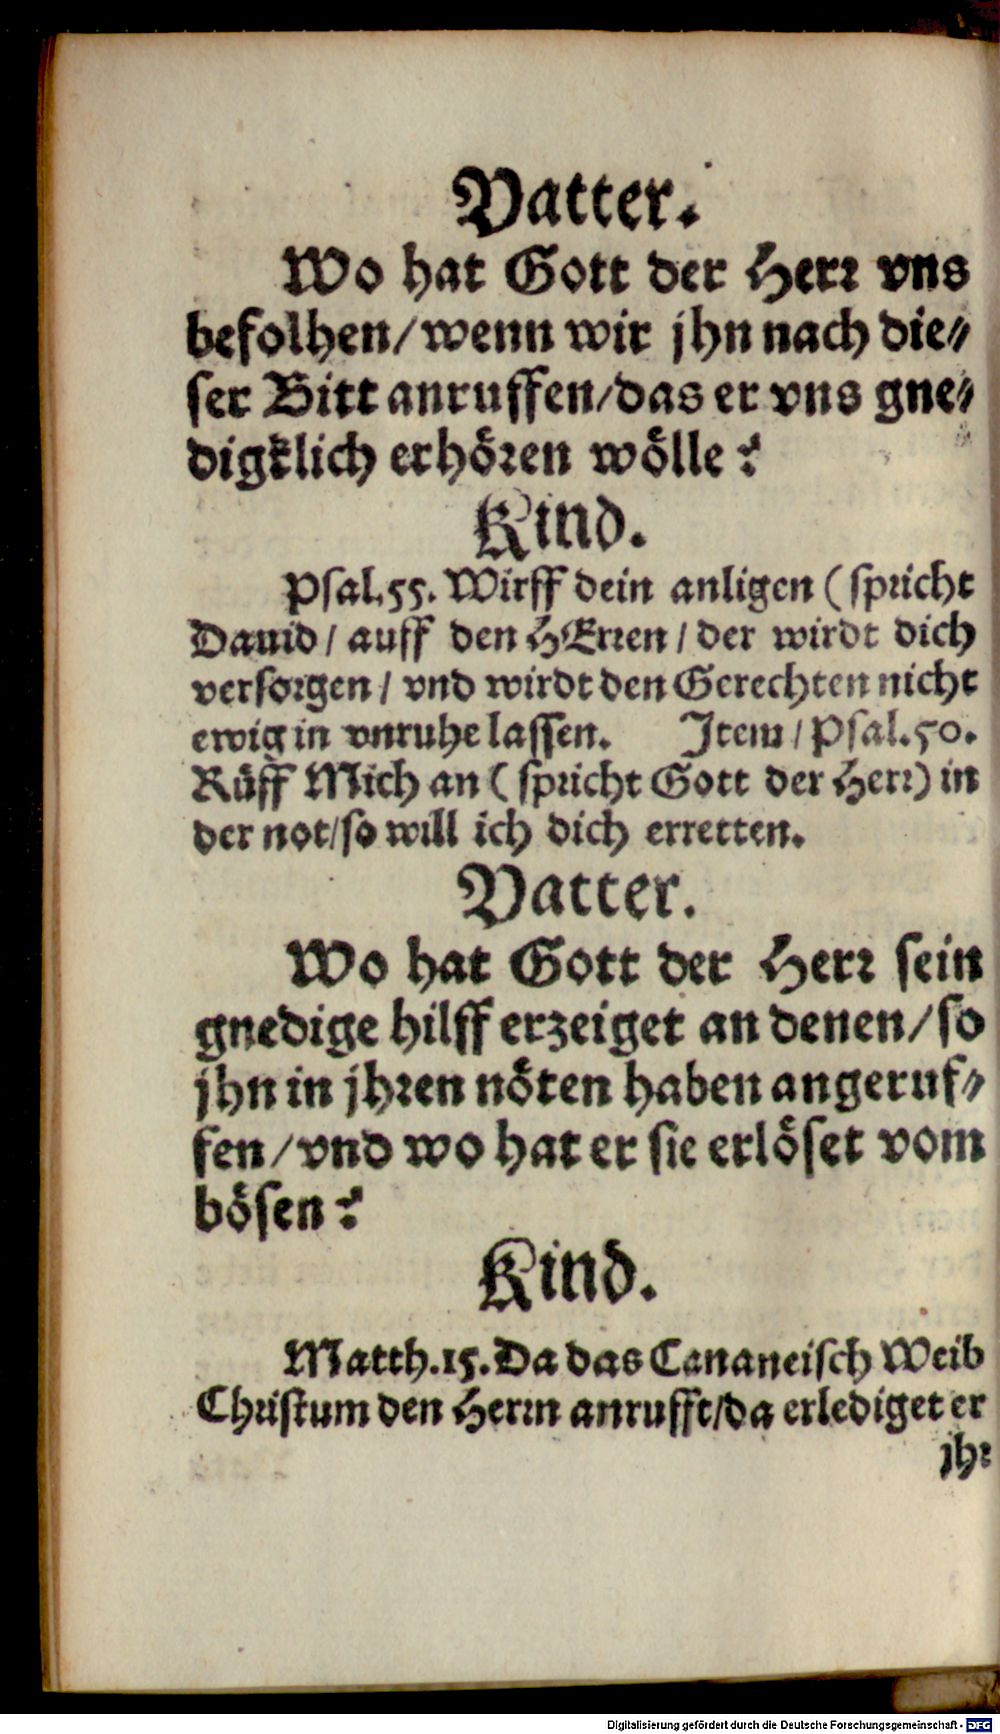 Vatter.
Wo hat Gott der Herr vns
befolhen/wenn wir jhn nach die⸗
ser Bitt anruffen/das er vns gne⸗
digklich erhören wölle?
Kind.
Psal.55. Wirff dein anligen (spricht
Dauid/ auff den HErren/ der wirdt dich
versorgen/ vnd wirdt den Gerechten nicht
ewig in vnruhe lassen. Item/ Psal.50.
Rüff Mich an (spricht Gott der Herr) in
der not/so will ich dich erretten.
Vatter.
Wo hat Gott der Herr sein
gnedige hilff erzeiget an denen/so
jhn in jhren nöten haben angeruf⸗
fen/vnd wo hat er sie erlöset vom
bösen?
Kind.
Matth.15. Da das Cananeisch Weib
Christum den Herrn anrufft/da erlediget er
jhr
Digitalisierung gefördert durch die Deutsche Forschungsgemeinschaft - DFG